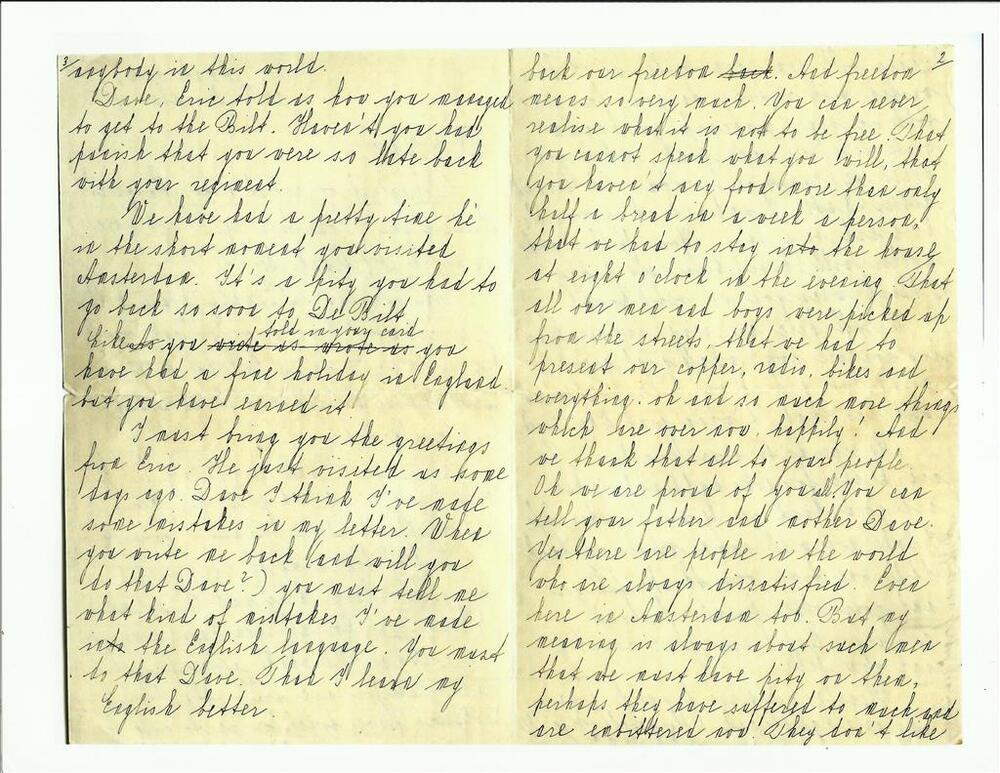 2
back our freedom back. And freedom
means so very much. You can never
realise what it is not to be free. That
you cannot speak what you will, that
you haven't any food more than only
half a bread in a week a person,
that we had to stay into the house
at eight o'clock in the evening. That
all our men and boys were picked up
from the streets, that we had to
present our copper, radio, bikes and
everything. oh and so much more things
which are over now, happily! And
we thank that all to your people.
Oh we are proud of you all. You can
tell your father and mother Dave.
Yes there are people in the world
who are always dissatisfied. Even
here in Amsterdam too. But my
meaning is always about such men
that we must have pity on them,
perhaps they have suffered to much and
are embittered now. They don't like
3
anybody in this world.
Dave, Eric told us how you managed
to get to the Bilt. Haven't you had
punish that you were so late back
with your regiment.
We have had a pretty time hè
in the short moment you visited
Amsterdam. It's a pity you had to
go back so soon to De Bilt.
told in your card
Like As you wrote us wrote us you
have had a fine holiday in England.
but you have earned it.
I must bring you the greetings
from Eric. He just visited us some
days ago. Dave I think I've made
some mistakes in my letter. When
you write me back (and will you
do that Dave?) you must tell me
what kind of mistakes I've made
into the English language. You must
do that Dave. Than I learn my
English better